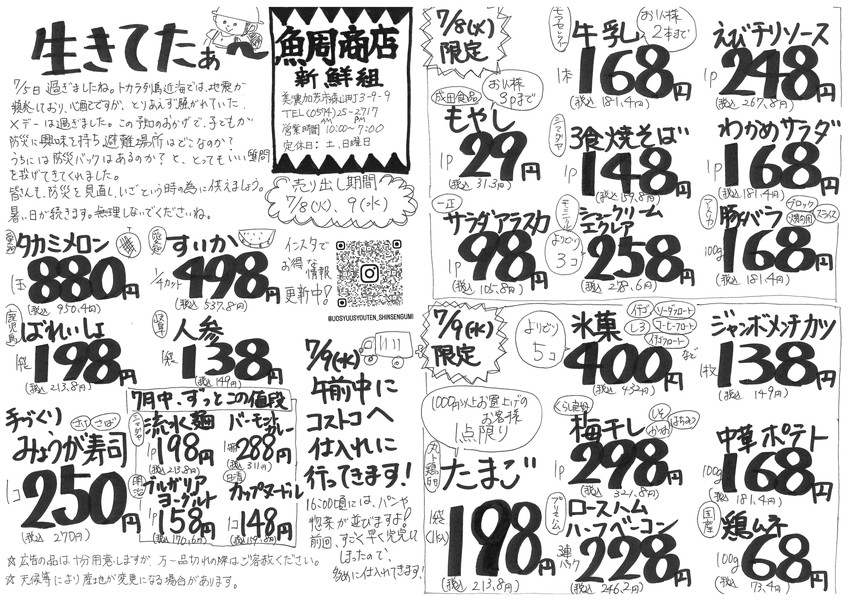 生きてたぁ
7/5日過ぎましたね。トカラ列島近海では、地震が
続きており、心配ですが、とりあえず騒がれていた、
Xデーは過ぎました。この予知のおかげで、子どもが
防災に興味を持ち避難場所はどこなのか?
うちには防災バックはあるのか?と、とってもいい質問
を投げてきてくれました。
皆さんも、防災を見直し、いざという時の為に伝えましょう。
暑い日が続きます。無理しないでくださいね。
魚周商店
新鮮組
美濃加茂市森山町3-9-9
TEL(0574)25-2717
営業時間 AM10:00〜PM7:00
定休日:土、日曜日
売り出し期間
7/8(火)、9(水)
インスタで
お得な
情報
更新中!
@UOSYUUSYOUTEN_SHINSENGUMI
愛知
タカミメロン
1玉
880円
(税込 950.4円)
愛知
すいか
1/4カット
498円
(税込 537.8円)
鹿児島
ばれいしょ
1袋
198円
(税込 213.8円)
岐阜
人参
1袋
138円
(税込 149円)
手づくり
さけ さば
みょうが寿司
1コ
250円
(税込 270円)
7月中、ずっとこの値段
シマダヤ
流水麺
1P
198円
(税込 213.8円)
バーモントカレー
288円
(税込 311円)
明治
ブルガリア
ヨーグルト
1P
158円
(税込 170.6円)
日清
カップヌードル
1コ
148円
(税込 159.8円)
7/9(水)
午前中に
コストコへ
仕入れに
行ってきます!
16:00頃には、パンや
惣菜が並びますよ!
前回、すごく早く完売し
しまったので、
多めに仕入れてきます!
☆広告の品は十分用意しますが、万一品切れの際はご容赦ください。
☆天候等により産地が変更になる場合があります。
7/8(火)
限定
牛乳
お1人様
2本まで
1本
168円
(税込 181.4円)
えびチリソース
1P
248円
(税込 267.8円)
成田食品
お1人様
3Pまで
もやし
1P
29円
(税込 31.3円)
シマダヤ
3食焼そば
1P
148円
(税込 159.8円)
わかめサラダ
1P
168円
(税込 181.4円)
一正
サラダアラスカ
1P
98円
(税込 105.8円)
モンテール
シュークリーム
エクレア
よりどり
3コ
258円
(税込 278.6円)
アメリカ
豚バラ
ブロック
焼肉用
スライス
100g
168円
(税込 181.4円)
7/9(水)
限定
よりどり
5コ
氷菓
イチゴ
ソーダフロート
コーヒーフロート
イチゴフロート
など
400円
(税込 432円)
ジャンボメンチカツ
1枚
138円
(税込 149円)
1000円以上お買上げの
お客様
1点限り
たまご
1袋
198円
(税込 213.8円)
くらし良好
梅干し
しそ
かつお
はちみつ
1P
298円
(税込 321.8円)
中華ポテト
100g
168円
(税込 181.4円)
プリマハム
ロースハム
ハーフベーコン
3連
パック
228円
(税込 246.2円)
国産
鶏ムネ
100g
68円
(税込 73.4円)